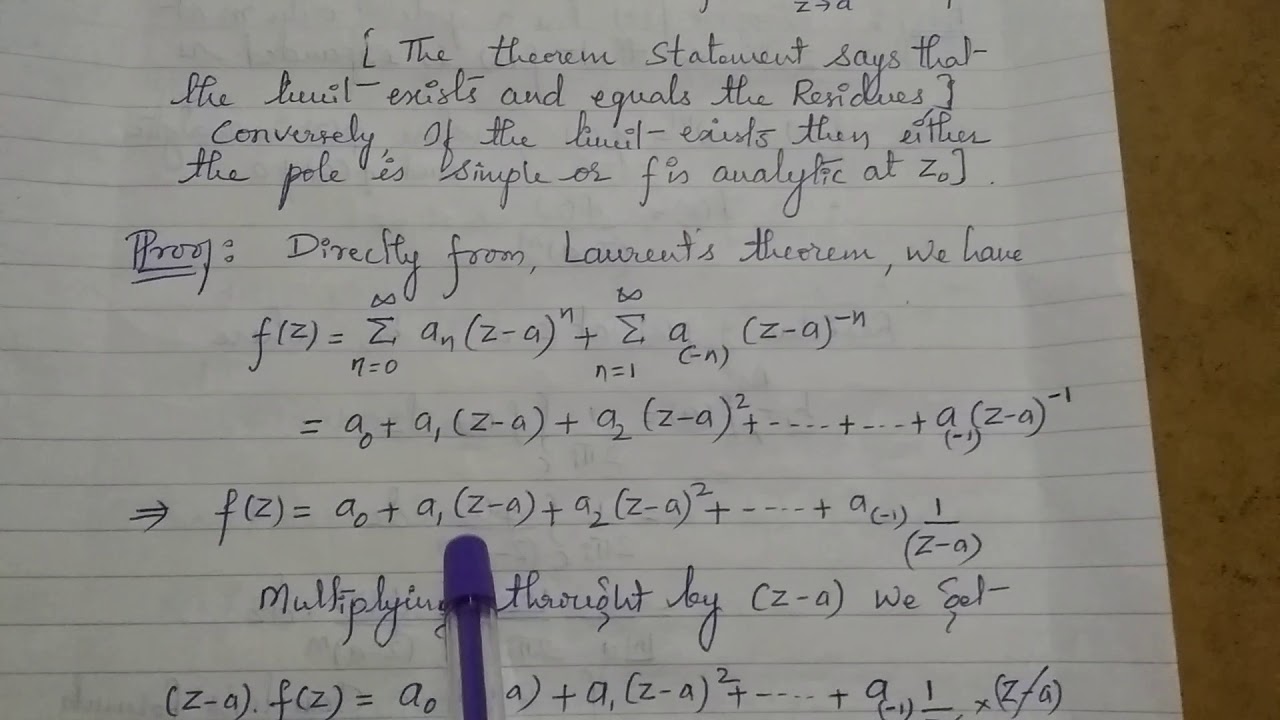 z→a
[ The theorem Statement says that
the limit exists and equals the Residues]
Conversely, If the limit exists, then either
the pole is simple or f is analytic at z₀].
Proof: Directly from, Laurent's theorem, we have
f(z) = Σ_{n=0}^{∞} aₙ(z-a)ⁿ + Σ_{n=1}^{∞} a₍₋ₙ₎ (z-a)⁻ⁿ
= a₀ + a₁(z-a) + a₂(z-a)² + ----- + --- + a₍₋₁₎(z-a)⁻¹
⇒ f(z) = a₀ + a₁(z-a) + a₂(z-a)² + ----- + a₍₋₁₎ 1/(z-a)
Multiplying throught by (z-a) we get
(z-a). f(z) = a₀ a) + a₁(z-a)² + ----- + a₍₋₁₎ 1 × (z-a)